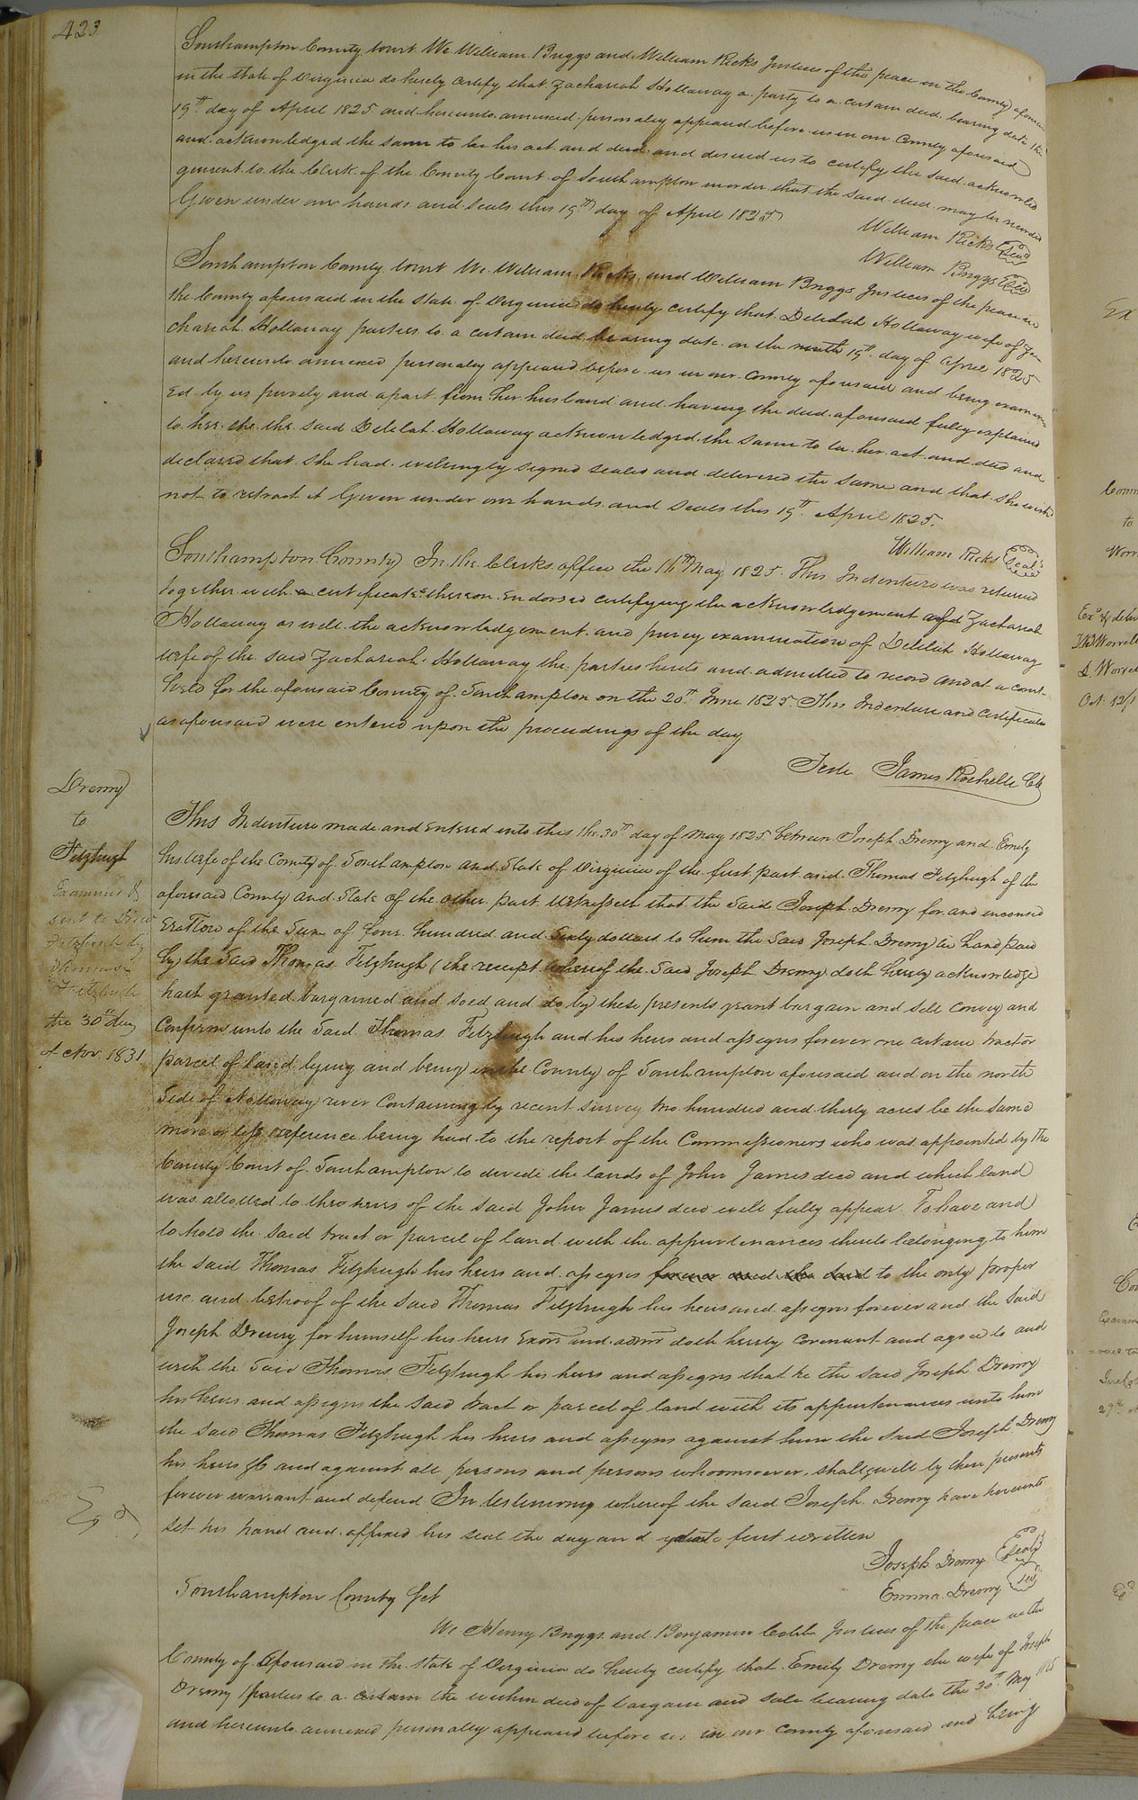 423
Southampton County Court We William Briggs and William Ricks Justices of the peace in the County aforesaid
in the state of Virginia do hereby certify that Zachariah Holloway a party to a certain deed bearing date the
19th day of April 1825 and hereunto annexed personaley appeared before us in our County aforesaid
and acknowledged the same to be his act and deed and desired us to certify the said acknowled
gement to the Clerk of the County Court of Southampton in order that the said deed may be recorded
Given under our hands and seals this 19th day of April 1825
William Ricks Seal
William Briggs Seal
Southampton County Court We William Ricks and William Briggs Justices of the peace in
the County aforesaid in the state of Virginia do hereby certify that Delilah Holloway wife of Za
chariah Holloway parties to a certain deed bearing date on the 19th day of April 1825
and hereunto annexed personaley appeared before us in our County aforesaid and being examin
ed by us privily and apart from her husband and having the deed aforesaid fully explained
to her she the said Delilah Holloway acknowledged the same to be her act and deed and
declared that she had willingly signed sealed and delivered the same and that she wished
not to retract it Given under our hands and seals this 19th April 1825.
William Ricks Seal
Southampton County In the Clerks office the 16th May 1825. This Indenture was returned
together with certificates thereon endorsed certifying the acknowledgement of Zachariah
Holloway as well the acknowledgement and privy examination of Delilah Holloway
wife of the said Zachariah Holloway the parties hereto and admitted to record and at a court
held for the aforesaid County of Southampton on the 20th June 1825 This Indenture and certificates
as aforesaid were entered upon the proceedings of the day
Teste James Rochelle Clk
Drewry
to
Fitzhugh
Examined &
the 30th day
of Nov. 1831
This Indenture made and entered into this the 30th day of May 1825 between Joseph Drewry and Emily
his wife of the County of Southampton and State of Virginia of the first part and Thomas Fitzhugh of the
aforesaid County and State of the other part witnesseth that the said Joseph Drewry for and inconsid
eration of the Sum of four hundred and Sixty dollars to him the said Joseph Drewry in hand paid
by the said Thomas Fitzhugh (the receipt whereof the said Joseph Drewry doth hereby acknowledge
hath granted bargained and sold and do by these presents grant bargain and sell convey and
Confirm unto the said Thomas Fitzhugh and his heirs and assigns forever one certain tract or
parcel of land lying and being in the County of Southampton aforesaid and on the north
Side of Nottoway river Containing by recent survey two hundred and thirty acres be the same
more or less reference being had to the report of the Commissioners who was appointed by the
County Court of Southampton to devide the lands of John James decd and which land
was allotted to the heirs of the said John James decd will fully appear. To have and
to hold the said tract or parcel of land with the appurtenances thereto belonging to him
the said Thomas Fitzhugh his heirs and assigns forever and the said to the only proper
use and behoof of the said Thomas Fitzhugh his heirs and assigns forever and the said
Joseph Drewry for himself his heirs Exors and admrs doth hereby covenant and agree to and
with the said Thomas Fitzhugh his heirs and assigns that he the said Joseph Drewry
his heirs and assigns the said tract or parcel of land with its appurtenances unto him
the said Thomas Fitzhugh his heirs and assigns against him the said Joseph Drewry
his heirs &c and against all persons and persons whoomsoever shall will by these presents
forever warrant and defend In testimony whereof the said Joseph Drewry have hereunto
set his hand and affixed his seal the day and date first written
Joseph Drewry Seal
Emma Drewry Seal
Southampton County Sct
We Henry Briggs and Benjamin Cobb Justices of the peace in the
County of Aforesaid in the state of Virginia do hereby certify that Emily Drewry the wife of Joseph
Drewry parties to a certain the within deed of bargain and sale bearing date the 30th May 1825
and hereunto annexed personaley appeared before us in our County aforesaid and being
Ex
to